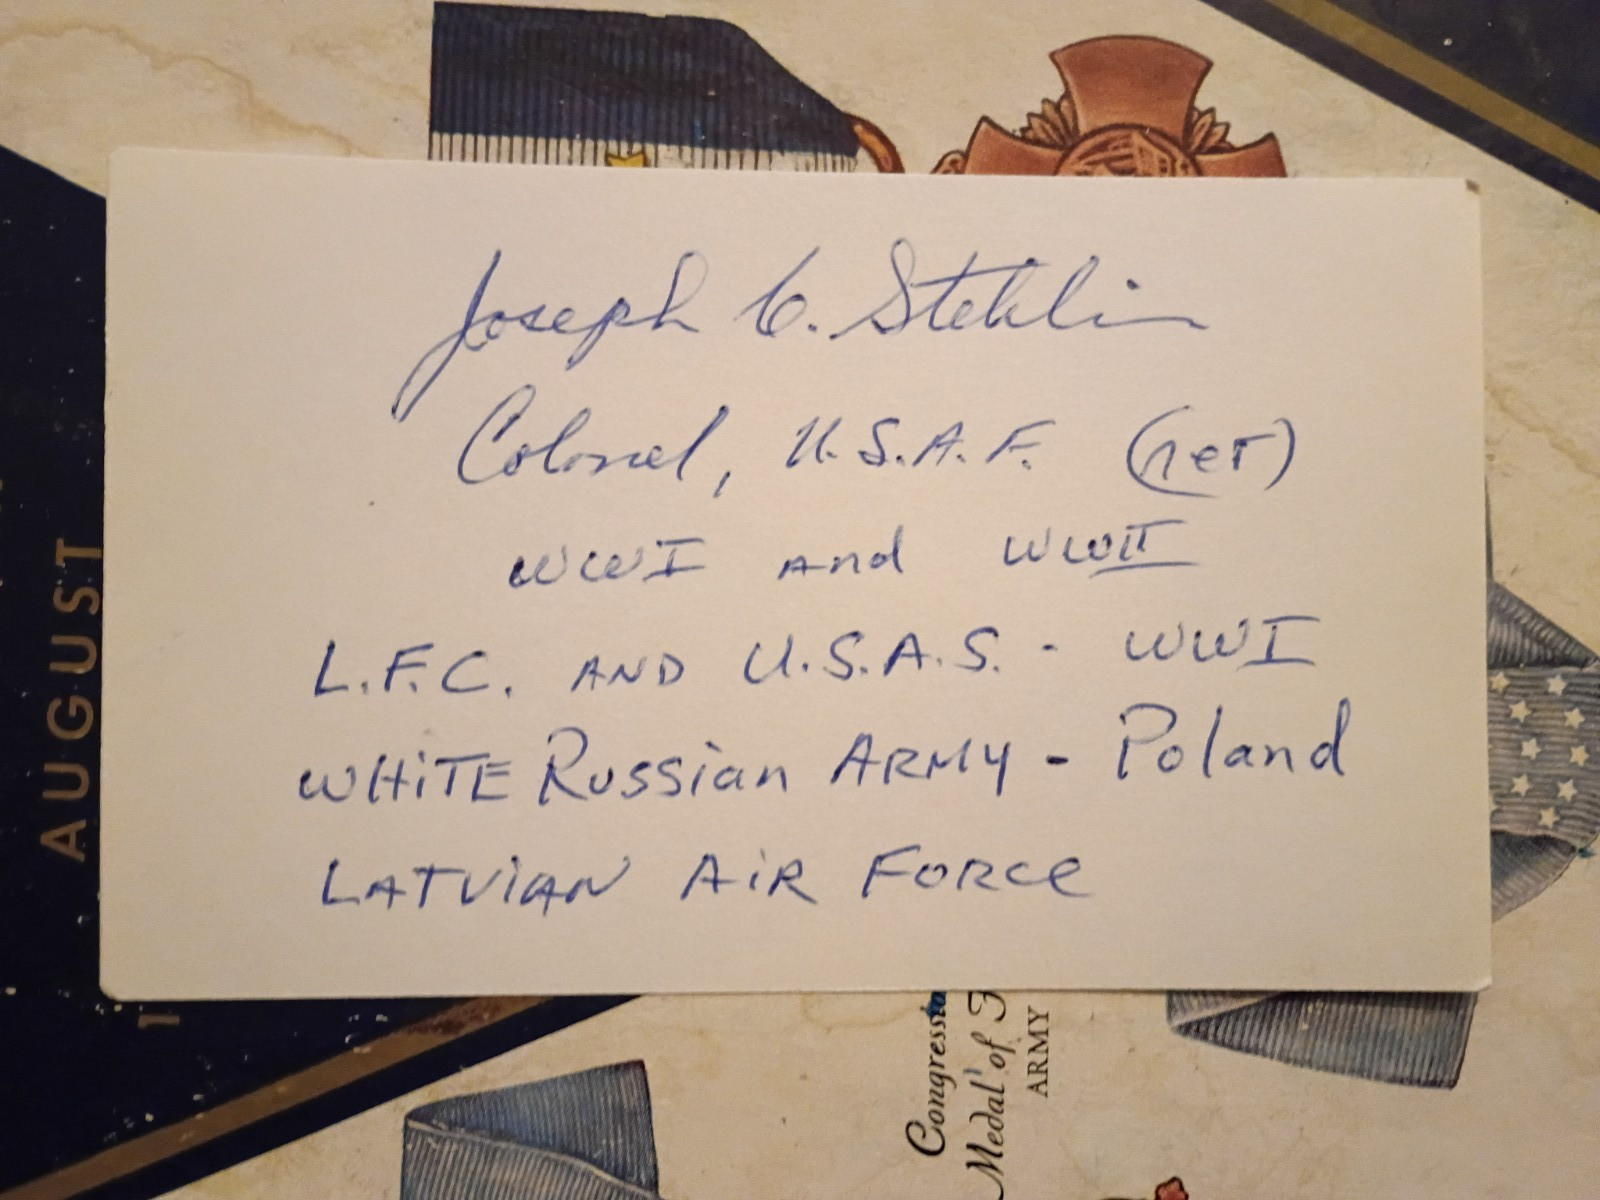 Joseph C. Stehlin
Colonel, U.S.A.F. (ret)
WWI and WWII
L.F.C. AND U.S.A.S. - WWI
WHiTE Russian ARMY - Poland
LATViAN AiR FORCE
AUGUST
1
Congressio
Medal of
ARMY